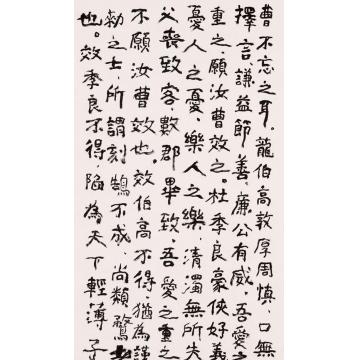 曹不忘之耳。龍伯高敦厚周慎，口無
擇言，謙益節善，廉公有威，吾愛之
重之，願汝曹效之。杜季良豪俠好義，
憂人之憂，樂人之樂，清濁無所失，
父喪致客，數郡畢致，吾愛之重之，
不願汝曹效也。效伯高不得，猶為謹
勑之士，所謂刻鵠不成，尚類鶩者
也。效季良不得，陷為天下輕薄子